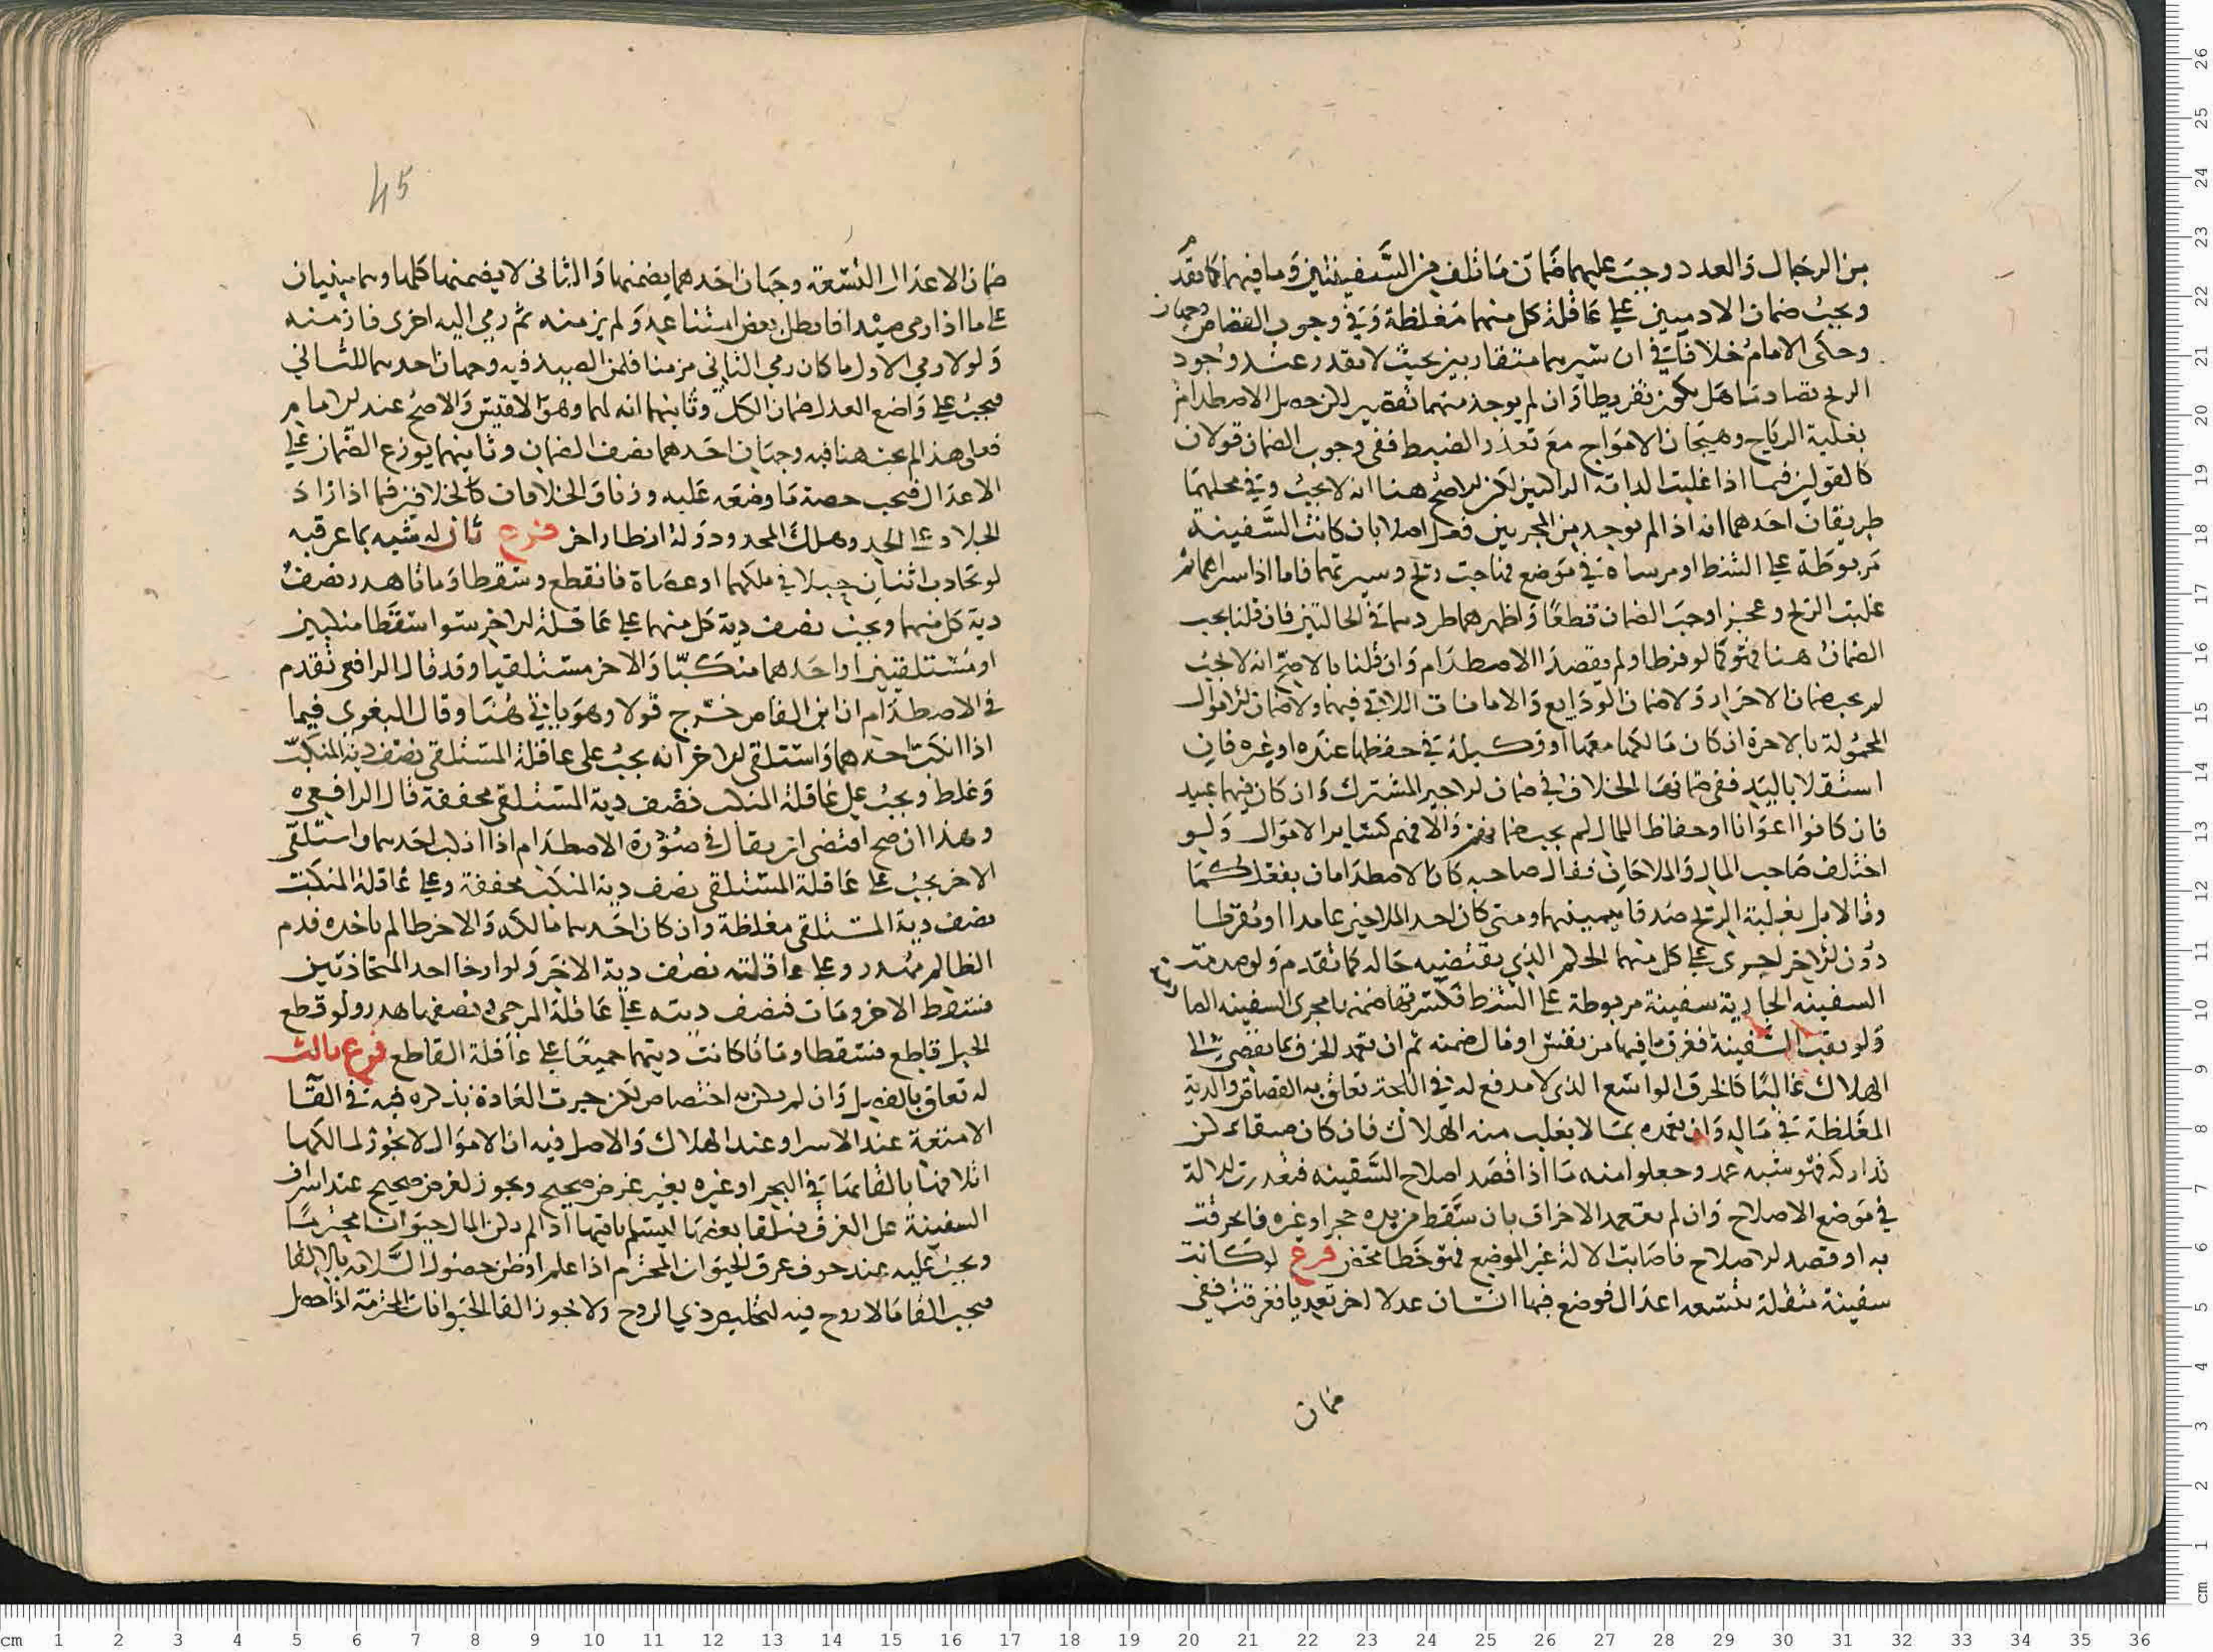 من الرجال والعدد وجب عليهما ضمان ما تلف من السفينتين وما فيهما كما تقدم
ويجب ضمان الادميين على عاقلة كل منهما مغلظة وفي وجوب القصاص وجهان
وحكى الامام خلافا في ان سيرهما متقاربين بحيث لا يقدر عند وجود
الريح تصادمتا هل يكون تفريطا وان لم يوجد منهما تقصير لكن حصل الاصطدام
بغلبة الرياح وهيجان الامواج مع تعذر الضبط ففي وجوب الضمان قولان
كالقولين فيما اذا غلبت الدابة الراكبين لكن الاصح هنا انه لا يجب وفي محلهما
طريقان احدهما انه اذا لم يوجد من المجريين فعل اصلا بان كانت السفينة
مربوطة على الشط او مرساة في موضع فهاجت ريح وسيرتهما فاما اذا سيراهما ثم
غلبت الريح وعجزا وجب الضمان قطعا واظهرهما طردهما في الحالتين فان قلنا يجب
الضمان هنا فهو كما لو فرطا ولم يقصدا الاصطدام وان قلنا بالاصح انه لا يجب
لم يجب ضمان الاحرار ولا ضمان الودايع والامانات اللاتي فيهما ولا ضمان الاموال
المحمولة بالاجرة ان كان مالكها معها او وكيله في حفظها عنده او غيره فان
استقلا باليد ففي ضمانها الخلاف في ضمان الاجير المشترك وان كان فيهما عبيد
فان كانوا اعوانا او حفاظا للمال لم يجب ضمانهم والا فهم كسائر الاموال ولو
اختلف صاحب المال والملاحان فقال صاحبه كان الاصطدام بفعلكما
وقالا بل بغلبة الريح صدقا بيمينهما ومتى كان احد الملاحين عامدا او مفرطا
دون الاخر اجري على كل منهما الحكم الذي يقتضيه حاله كما تقدم ولو صدمت
السفينة الجارية سفينة مربوطة على الشط فكسرتها ضمنها مجرى السفينه الصا
ولو ثقب السفينة فغرق ما فيها من نفس او مال ضمنه ثم ان تعمد الخرق بما يفضي الى
الهلاك غالبا كالخرق الواسع الذي لا مدفع له في اللجة تعلق به القصاص والدية
المغلظة في ماله وان تعمده بما لا يغلب منه الهلاك فان كان لكن
تداركه فهو شبه عمد وجعلوا منه ما اذا قصد اصلاح السفينه الالة
في موضع الاصلاح وان لم يتعمد الاخراق بان سقط من يده حجر او غيره فانخرقت
به او قصد الاصلاح فاصابت الالة غير الموضع فهو خطا محض فرع لو كانت
سفينة مثقلة بتسعة اعدال فوضع فيها انسان عدلا اخر تعديا فغرقت ففي
ضمان
45
ضمان الاعدال التسعة وجهان احدهما يضمنها والثاني لا يضمنها كلها وهما مبنيان
على ما اذا رمى صيدا فابطل بعض امتناعه ولم يزمنه ثم رمى اليه اخرى فازمنه
ولولا رمي الاول ما كان رمي الثاني مزمنا فلمن الصيد فيه وجهان احدهما للثاني
فيجب على واضع العدل ضمان الكل وثانيهما انه لهما وهو الاقيس والاصح عند الامام
فعلى هذا هنا فيه وجهان احدهما نصف الضمان وثانيهما يوزع الضمان على
الاعدال فيجب حصة ما وضعه عليه كالخلاف فيما اذا زاد
الجلاد على الحد وهلك المحدود وله انظار اخر فرع ثان له شبه بما عرفته
لو تجاذب اثنان حبلا في ملكهما او عصاة فانقطع وسقطا وماتا هدر نصف
دية كل منهما ويجب نصف دية كل منهما على عاقلة الاخر سوا سقطا منكبين
او مستلقيين او احدهما منكبا والاخر مستلقيا وقد قال الرافعي تقدم
في الاصطدام ان ابن القاص خرج قولا وهو يأتي هنا وقال البغوي فيما
اذا انكب احدهما واستلقى الاخر انه يجب على عاقلة المستلقي نصف دية المنكب
وغلط ويجب على عاقلة المنكب نصف دية المستلقي مخففة قال الرافعي
وهذا ان صح اقتضى ان يقال في صورة الاصطدام اذا انكب احدهما واستلقى
الاخر يجب على عاقلة المستلقي نصف دية المنكب مخففة وعلى عاقلة المنكب
نصف دية المستلقي مغلظة وان كان احدهما مالكه والاخر ظالم باخذه فدم
الظالم مهدر وعلى عاقلته نصف دية الاخر ولو ارخا احد المتجاذبين
فسقط الاخر ومات فنصف ديته على عاقلة المرخي ونصفها هدر ولو قطع
الحبل قاطع فسقطا وماتا كانت ديتهما جميعا على عاقلة القاطع فرع ثالث
له تعلق بالفصل وان لم يكن به اختصاص لكن جرت العادة بذكره فيه في القا
الامتعة عند الاسر او عند الهلاك والاصل فيه ان الاموال لا يجوز لمالكها
اتلافها بالقائها في البحر او غيره بغير غرض صحيح ويجوز لغرض صحيح عند اشراف
السفينة على الغرق فيلقا بعضها ليسلم باقيها اذا لم يكن المال حيوانا محترما
ويجب عليه عند خوف غرق الحيوان المحترم اذا علم او ظن حصول السلامة بالالقا
فيجب القا ما لا روح فيه لتخليص ذي الروح ولا يجوز القا الحيوانات المحترمة اذا حصل